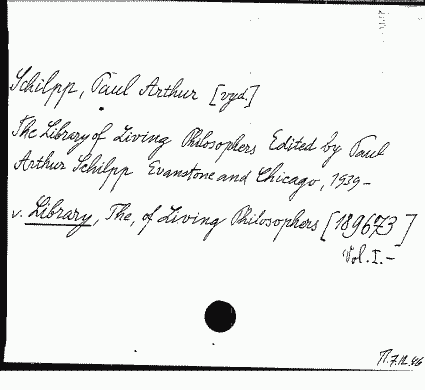 Schilpp, Paul Arthur [vyd.]
The Library of Living Philosophers Edited by Paul
Arthur Schilpp Evanstone and Chicago, 1939-
v. Library, The, of Living Philosophers [189673]
Vol. I.-